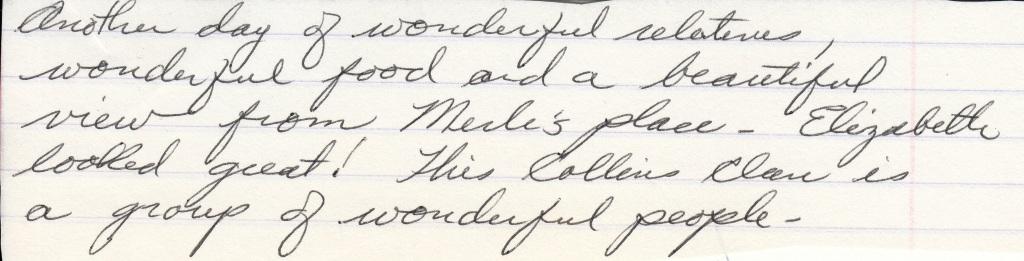 Another day of wonderful relatives,
wonderful food and a beautiful
view from Merle's place - Elizabeth
looked great! This Collins Clan is
a group of wonderful people -